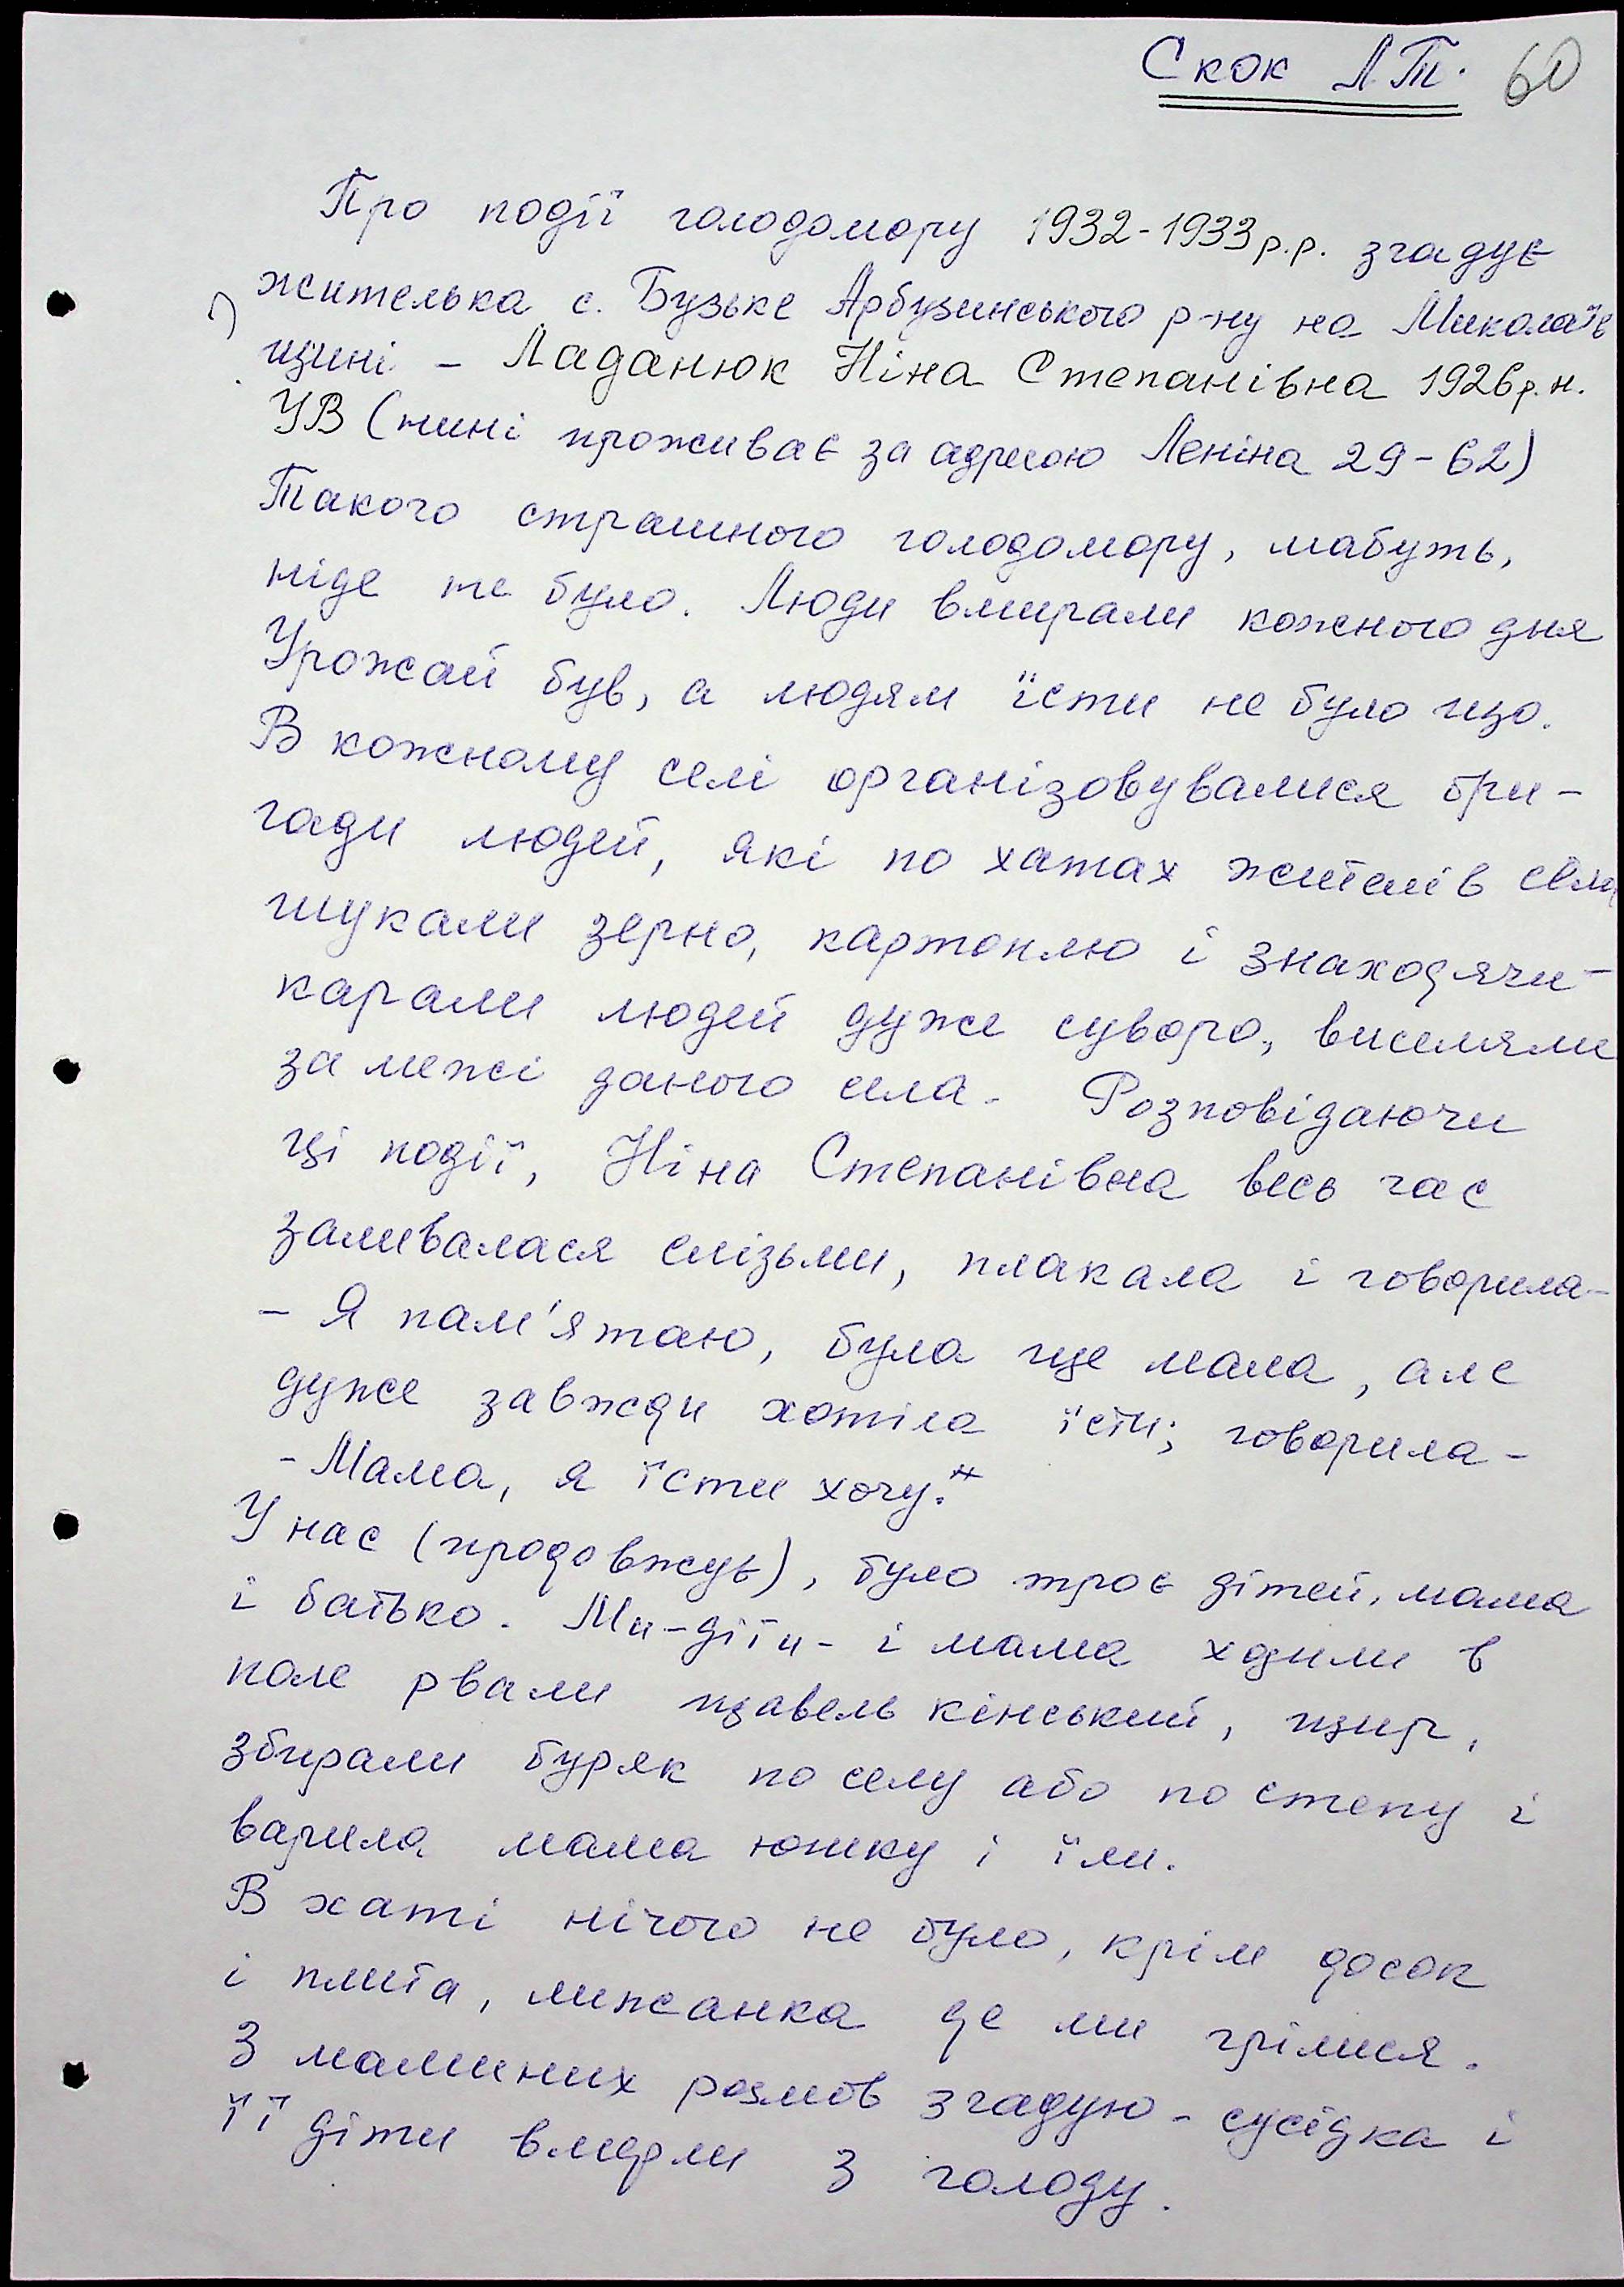 Скок Л Т. 60
Про події голодомору 1932-1933 р.р. згадує
жителька с. Бузьке Арбузинського р-ну на Миколаїв
щині - Ладанюк Ніна Степанівна 1926 р.н.
УВ (нині проживає за адресою Леніна 29-62)
Такого страшного голодомору, мабуть,
ніде не було. Люди вмирали кожного дня
Урожай був, а людям їсти не було що.
В кожному селі організовувалися бри-
гади людей, які по хатах жителів села
шукали зерно, картоплю і знаходячи-
карали людей дуже суворо, виселяли
за межі даного села. Розповідаючи
ці події, Ніна Степанівна весь час
заливалася слізьми, плакала і говорила-
- Я пам'ятаю, була ще мала, але
дуже завжди хотіла їсти; говорила-
- Мама, я їсти хочу."
У нас (продовжує), було троє дітей, мама
і батько. Ми-діти- і мама ходили в
поле рвали щавель кінський, щир,
збирали буряк по селу або по степу і
варила мама юшку і їли.
В хаті нічого не було, крім досок
і плита, лижанка де ми грілися.
З маминих розмов згадую - сусідка і
її діти вмерли з голоду.